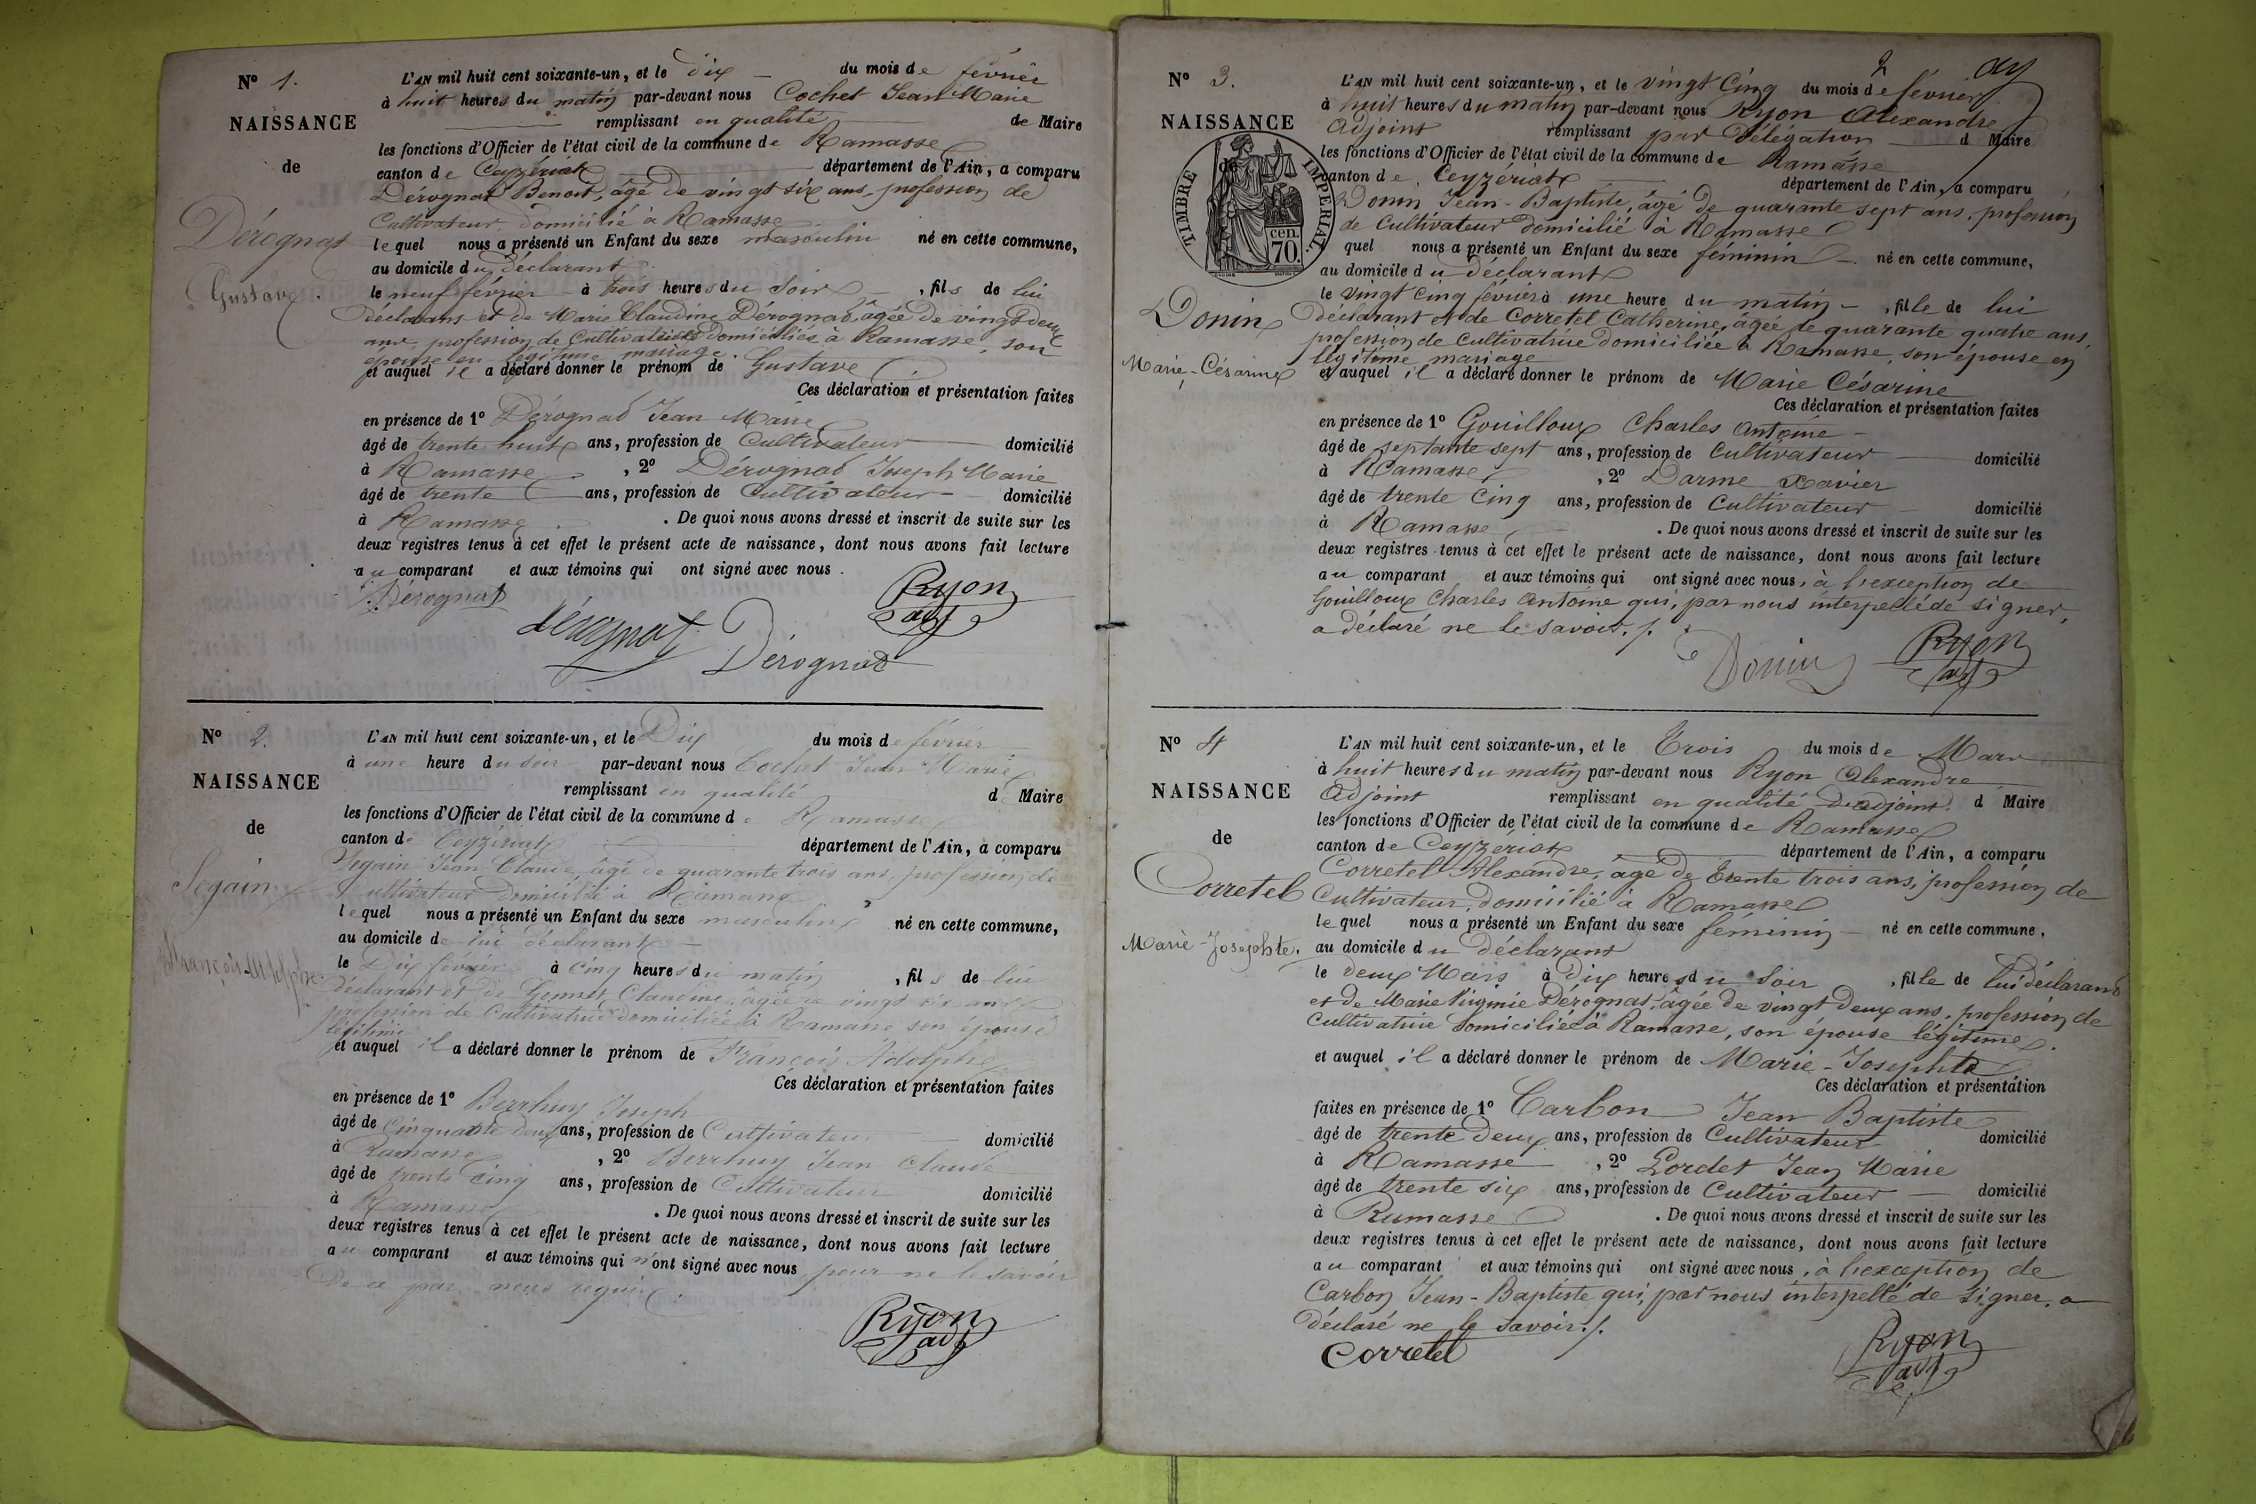 N° 1.
NAISSANCE
de
Dérognat
Gustave.
L'AN mil huit cent soixante-un, et le dix du mois de février
à huit heures du matin par-devant nous Cochet Jean Marie
remplissant en qualité de Maire
les fonctions d'Officier de l'état civil de la commune de Ramasse
canton de Ceyzériat département de l'Ain, a comparu
Dérognat Benoit, âgé de vingt six ans, profession de
Cultivateur domicilié à Ramasse
lequel nous a présenté un Enfant du sexe masculin né en cette commune,
au domicile du déclarant
le neuf février à trois heures du soir, fils de lui
déclarant et de Marie Claudine Dérognat, âgée de vingt deux
ans, profession de Cultivatrice domiciliés à Ramasse, son
épouse en légitime mariage.
et auquel il a déclaré donner le prénom de Gustave
Ces déclaration et présentation faites
en présence de 1° Dérognat Jean Marie
âgé de trente huit ans, profession de Cultivateur domicilié
à Ramasse, 2° Dérognat Joseph Marie
âgé de trente ans, profession de Cultivateur domicilié
à Ramasse. De quoi nous avons dressé et inscrit de suite sur les
deux registres tenus à cet effet le présent acte de naissance, dont nous avons fait lecture
au comparant et aux témoins qui ont signé avec nous.
Dérognat
Ryon
adj
dérognat
Dérognat
N° 2.
NAISSANCE
de
Segain
François-Adolphe
L'AN mil huit cent soixante-un, et le Dix du mois de février
à une heure du soir par-devant nous Cochet Jean Marie
remplissant en qualité d Maire
les fonctions d'Officier de l'état civil de la commune de Ramasse
canton de Ceyzériat département de l'Ain, a comparu
Segain Jean Claude, âgé de quarante trois ans, profession de
Cultivateur domicilié à Ramasse
lequel nous a présenté un Enfant du sexe masculin né en cette commune,
au domicile de lui déclarant
le Dix février à cinq heures du matin, fils de lui
déclarant et de Claudine, âgée de vingt six ans
profession de Cultivatrice domiciliée à Ramasse son épouse
légitime
et auquel il a déclaré donner le prénom de François Adolphe
Ces déclaration et présentation faites
en présence de 1° Berrhuy Joseph
âgé de cinquante deux ans, profession de Cultivateur domicilié
à Ramasse, 2° Berrhuy Jean Claude
âgé de trente cinq ans, profession de Cultivateur domicilié
à Ramasse. De quoi nous avons dressé et inscrit de suite sur les
deux registres tenus à cet effet le présent acte de naissance, dont nous avons fait lecture
au comparant et aux témoins qui n'ont signé avec nous pour ne le savoir
De ce par nous requis.
Ryon
adj
2
N° 3.
NAISSANCE
de
TIMBRE IMPERIAL.
cen.
70.
Donin
Marie-Césarine
L'AN mil huit cent soixante-un, et le vingt cinq du mois de février
à huit heures du matin par-devant nous Ryon Alexandre
Adjoint remplissant par délégation d Maire
les fonctions d'Officier de l'état civil de la commune de Ramasse
canton de Ceyzériat département de l'Ain, a comparu
Donin Jean-Baptiste, âgé de quarante sept ans, profession
de Cultivateur domicilié à Ramasse
quel nous a présenté un Enfant du sexe féminin né en cette commune,
au domicile du déclarant
le vingt cinq février à une heure du matin, fille de lui
déclarant et de Corretel Catherine, âgée de quarante quatre ans,
profession de Cultivatrice domiciliée à Ramasse, son épouse en
légitime mariage
et auquel il a déclaré donner le prénom de Marie Césarine
Ces déclaration et présentation faites
en présence de 1° Gouilloux Charles Antoine
âgé de septante sept ans, profession de Cultivateur domicilié
à Ramasse, 2° Darme Xavier
âgé de trente cinq ans, profession de Cultivateur domicilié
à Ramasse. De quoi nous avons dressé et inscrit de suite sur les
deux registres tenus à cet effet le présent acte de naissance, dont nous avons fait lecture
au comparant et aux témoins qui ont signé avec nous, à l'exception de
Gouilloux Charles Antoine qui, par nous interpellé de signer,
a déclaré ne le savoir./.
Donin
Ryon
adj
N° 4
NAISSANCE
de
Corretel
Marie-Josephte.
L'AN mil huit cent soixante-un, et le Trois du mois de Mars
à huit heures du matin par-devant nous Ryon Alexandre
Adjoint remplissant en qualité d'adjoint d Maire
les fonctions d'Officier de l'état civil de la commune de Ramasse
canton de Ceyzériat département de l'Ain, a comparu
Corretel Alexandre, âgé de trente trois ans, profession de
Cultivateur, domicilié à Ramasse
lequel nous a présenté un Enfant du sexe féminin né en cette commune,
au domicile du déclarant
le deux Mars à dix heures du soir, fille de lui déclarant
et de Marie Virginie Dérognat, âgée de vingt deux ans, profession de
Cultivatrice domiciliée à Ramasse, son épouse légitime.
et auquel il a déclaré donner le prénom de Marie-Josephte
Ces déclaration et présentation
faites en présence de 1° Carbon Jean Baptiste
âgé de trente deux ans, profession de Cultivateur domicilié
à Ramasse, 2° Lordet Jean Marie
âgé de trente six ans, profession de Cultivateur domicilié
à Ramasse. De quoi nous avons dressé et inscrit de suite sur les
deux registres tenus à cet effet le présent acte de naissance, dont nous avons fait lecture
au comparant et aux témoins qui ont signé avec nous, à l'exception de
Carbon Jean-Baptiste qui, par nous interpellé de signer, a
déclaré ne le savoir./.
Corretel
Ryon
adj